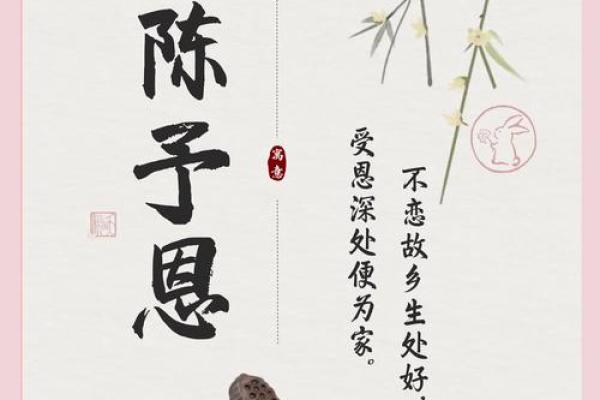 陈予恩
寓意
不恋故乡生处好，
受恩深处便为家。